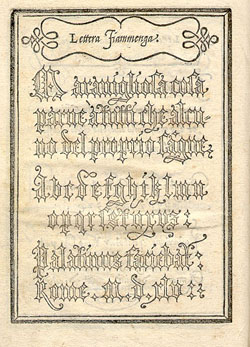 Lettera Fiammenga.
Marauigliosa cosa
parue a tutti che alcu
no del proprio sãgue,
Abcdefghiklmn
Palatinus faciebat:
Rome .m.d.xlv: